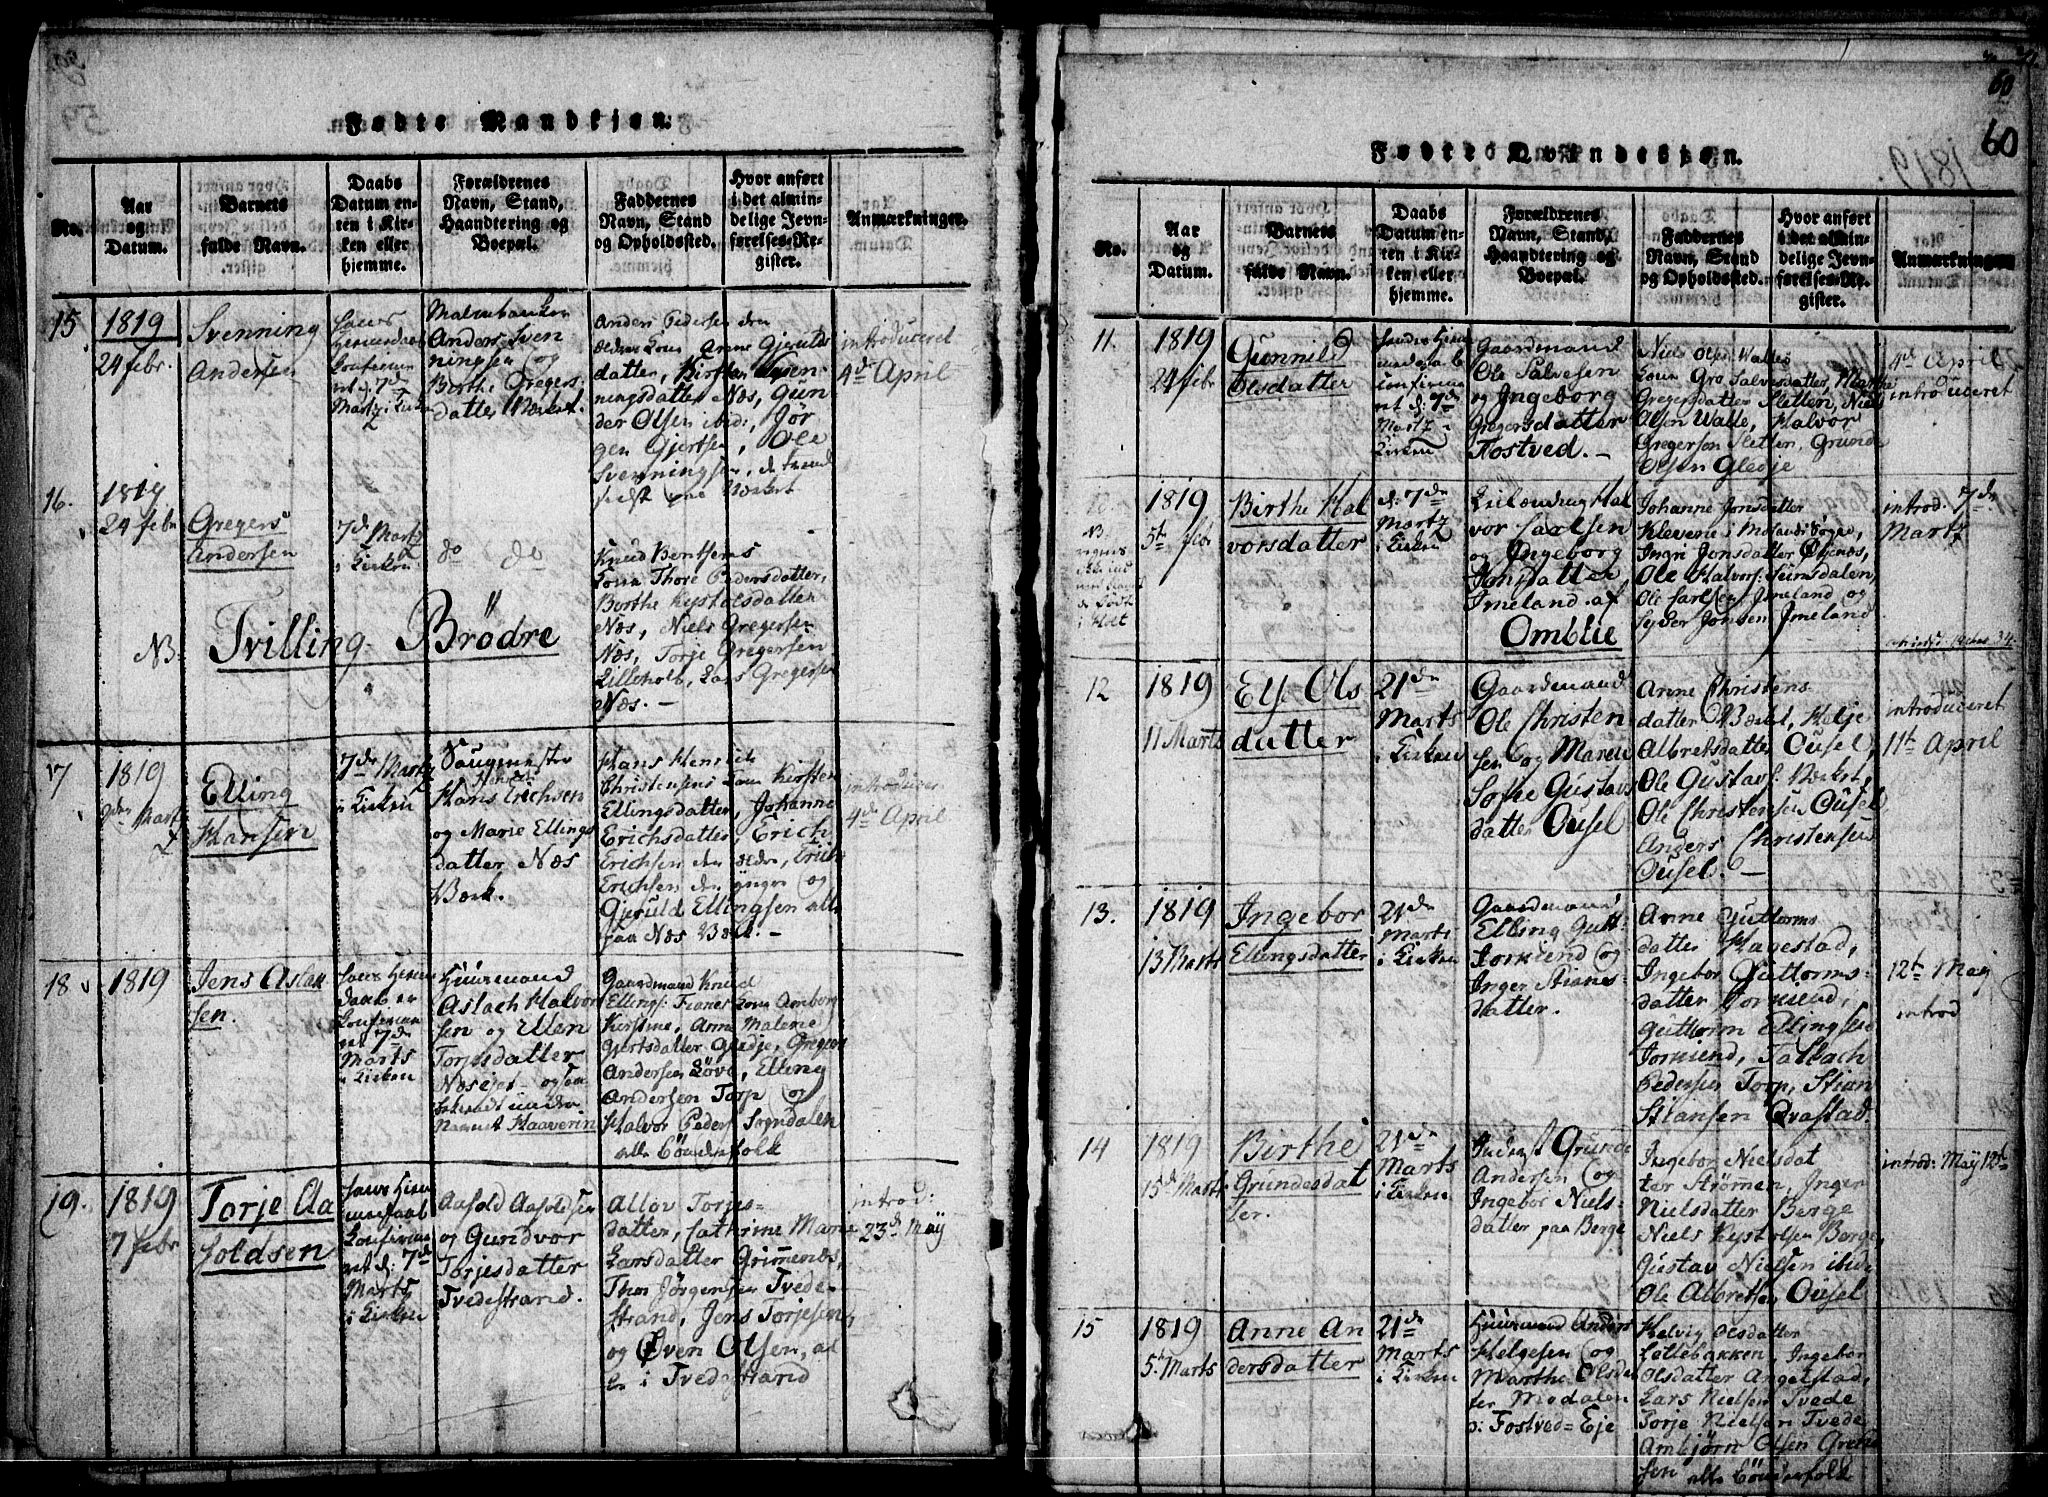 Fødte Mandkjøn.
No.
Aar
og
Datum.
Barnets
fulde Navn.
Daabs
Datum en-
ten i Kir-
ken eller
hjemme.
Forældrenes
Navn, Stand,
Haandtering og
Boepæl.
Faddernes
Navn, Stand
og Opholdssted.
Hvor anført
i det almin-
delige Jevn-
førelses-Re-
gister.
Anmærkninger.
15
1819
24 febr.
Svenning
Andersen
d: 7de
Martz i Kirken
Anders Sven
ningsen og
Berthe Gregers
datter Værket.
Anders Pedersen den
ældres Kone Anne Gjerulds
datter, Birthe Sven
ningsdatter Næs, Gun
der Olsen ibid:, Jør
gen Gjertsen, Ole
Svenningsen, de
sidst Værket
introduceret
4de April
16.
1819
24 febr
Gregers
Andersen
7de Martz
i Kirken
do do
Knud Bentsens
Kone Thore Pedersdatter,
Berthe Kystolsdatter
Næs, Niels Gregersen
Næs, Torje Gregersen
Lilleholt, Lars Gregersen
Næs. —
NB: Tvilling Brødre
17
1819
Martz
Elling
Hansen
7de Martz
i Kirken
Saugmester
Hans Erichsen
og Marie Ellings
datter Næs
Værk.
Hans Henrik
Christensens Kone Kirsten
Ellingsdatter, Johanne
Erichsdatter, Erich
Erichsen den ældre, Erich
Erichsen den yngre og
Gjeruld Ellingsen alle
paa Næs Værk. —
introducer
4de April
18
1819
Jens Aslak
sen.
7de
Marts
i Kirken
Huusmand
Aslach Halvor
sen og Ellen
Torjesdatter
Næsejet
Haaverin
Gaardmand Knud
Ellings: Fianes Kone Amborg
Kirstine, Anne Malene
Gjertsdatter Gledje, Gregers
Andersen Løve, Elling
Andersen Torp og
Halvor Peders: Songdalen
alle Bøndefolk
19.
1819
7 febr
Torje Aa
soldsen
d: 7de
Marts
i Kirken
Aasold Aasoldsen
og Gundvor
Torjesdatter
Tvedestrand.
Allov Torjes-
datter, Cathrine Marie
Larsdatter Grimenæs,
Thor Jørgensen Tvede-
strand, Jens Torjesen
og Øven Olsen, al
le i Tvedestrand
introd:
23de Maÿ
60
60
1819.
Fødte Qvindekjøn.
No.
Aar
og
Datum.
Barnets
fulde Navn.
Daabs
Datum en-
ten i Kir-
ken eller
hjemme.
Forældrenes
Navn, Stand,
Haandtering og
Boepæl.
Faddernes
Navn, Stand
og Opholdssted.
Hvor anført
i det almin-
delige Jevn-
førelses-Re-
gister.
Anmærkninger
11.
1819
24 febr
Gunnild
Olsdatter
d: 7de
Martz i
Kirken
Gaardmand
Ole Salvesen
og Ingeborg
Gregersdatter
Fostved. —
Niels Olsen Walles
Kone Gro Salvesdatter, Marthe
Gregersdatter Sletten, Niels
Olsen Walle, Halvor
Gregersen Sletten, Grunde
Olsen Gledje
4de April
introduceret
1819
5te febr
Birthe Hal
vorsdatter
d: 7de
Martz
i Kirken
Hal
vor Carlsen
og Ingeborg
Jonsdatter
Imeland af
Omblie
Johanne Jonsdatter
Klevene i
Ingri Jonsdatter Øynes,
Ole Halvors: Simsdalen,
Ole Carlsen Imeland og
Jonsen Imeland
introd: 7de
Martz
12
1819
11 Marts
Elj. Ols
datter
21de
Marts
i Kirken
Gaardmand
Ole Christen
sen og Maren
Sofie Gustavs
datter Ousel
Anne Christens
datter Værket, Helje
Albretsdatter Ousel,
Ole Gustavs: Værket,
Ole Christensen Ousel
Anders Christensen
Ousel. —
introduceret
11te April
13.
1819
13 Marts
Ingebor
Ellingsdatter
21de
Marts
i Kirken
Gaardmand
Elling Gut-
tormsend og
Inger Stians-
datter.
Anne Guttorms
datter Hagestad,
Ingebor Guttorms-
datter
Guttorm Ellingsen
Tallach
Pedersen Torp, Stian
Hansen Qvastad.
12te Maj
introd
14
1819
15de Marts
Birthe
Grundesdat
ter.
21de
Marts
i Kirken
Inderst Grunde
Andersen og
Ingebor Niels-
datter paa Berge
Ingebor Nielsdat
ter Strømen, Inger
Nielsdatter Berge
Niels Kystolsen Berge,
Gustav Nielsen ibid:
Ole Albretsen Ousel
introd: Maÿ 12te
15
1819
5te Marts
Anne An
dersdatter
21de
Marts
i Kirken
Huusmand Anders
Helgesen og
Marthe Olsdat
ter Modalen
p: Fostved=Eje
Helvig Olsdatter
Lillebakken, Ingebor
Olsdatter Angelstad,
Lars Nielsen Tvede
Torje Nielsen Tvede
Ambjørn Olsen
alle Bønderfolk